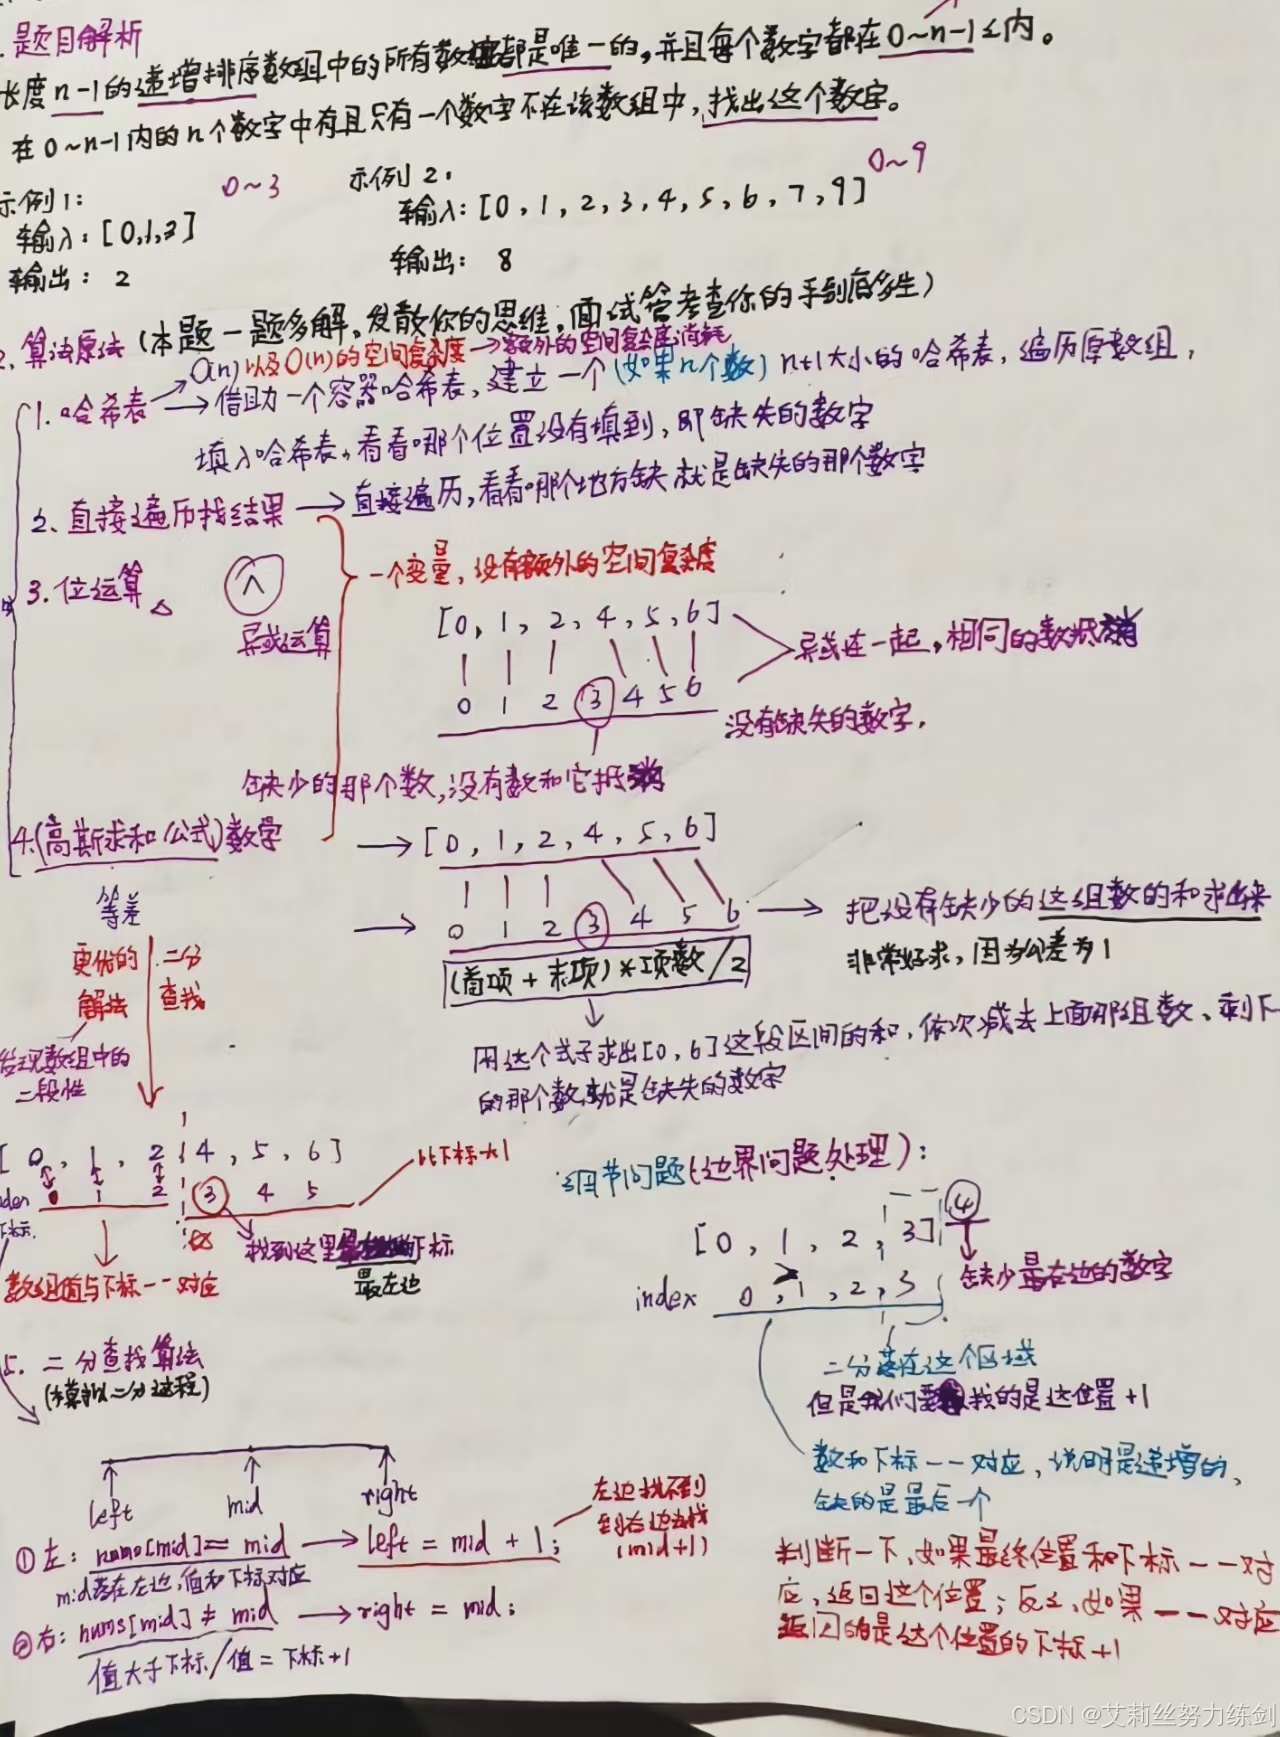 题目解析
长度n-1的递增排序数组中的所有数字都是唯一的，并且每个数字都在0~n-1之内。
在0~n-1内的n个数字中有且只有一个数字不在该数组中，找出这个数字。
示例1：
0~3
输入：[0,1,3]
输出：2
示例2：
0~9
输入：[0,1,2,3,4,5,6,7,9]
输出：8
2.算法原法（本题一题多解，发散你的思维，面试管考查你的手到底多生）
O(n)以及O(n)的空间复杂度→额外的空间复杂度消耗
1.哈希表→借助一个容器哈希表，建立一个（如果n个数）n+1大小的哈希表，遍历原数组，
填入哈希表，看看哪个位置没有填到，即缺失的数字
2、直接遍历找结果→直接遍历，看看哪个地方缺就是缺失的那个数字
3.位运算
^
异或运算
一个变量，没有额外的空间复杂度
[0,1,2,4,5,6]
0 1 2 3 4 5 6
异或在一起，相同的数抵消
没有缺失的数字，
缺少的那个数，没有数和它抵消
4.(高斯求和公式)数学
→[0,1,2,4,5,6]
→ 0 1 2 3 4 5 6→把没有缺少的这组数的和求出来
非常好求，因为公差为1
(首项+末项)*项数/2
用这个式子求出[0,6]这段区间的和，依次减去上面那组数、剩下
的那个数就是缺失的数字
等差
更优的
解法
二分
查找
发现数组中的
二段性
[0,1,2,4,5,6]
index
下标
1 2 3 4 5
比下标大1
找到这里下标
最左边
数组值与下标一一对应
细节问题(边界问题处理)：
[0,1,2,3] 4
index 0,1,2,3
缺少最右边的数字
二分落在这个区域
但是我们要找的是这位置+1
数和下标一一对应，说明是递增的，
缺的是最后一个
判断一下，如果最终位置和下标一一对
应，返回这个位置；反之，如果一一对应
返回的是这个位置的下标+1
5.二分查找算法
(模拟二分过程)
left
mid
right
①左：nums[mid]==mid→left=mid+1;
左边找不到
到右边去找
(mid+1)
mid落在左边，值和下标对应
②右：nums[mid]≠mid→right=mid;
值大于下标/值=下标+1
CSDN @艾莉丝努力练剑